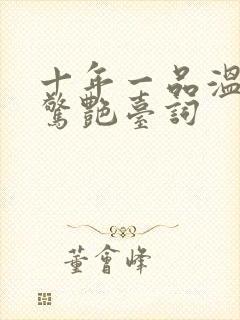 十年一品温
驚艷臺詞
董會峰